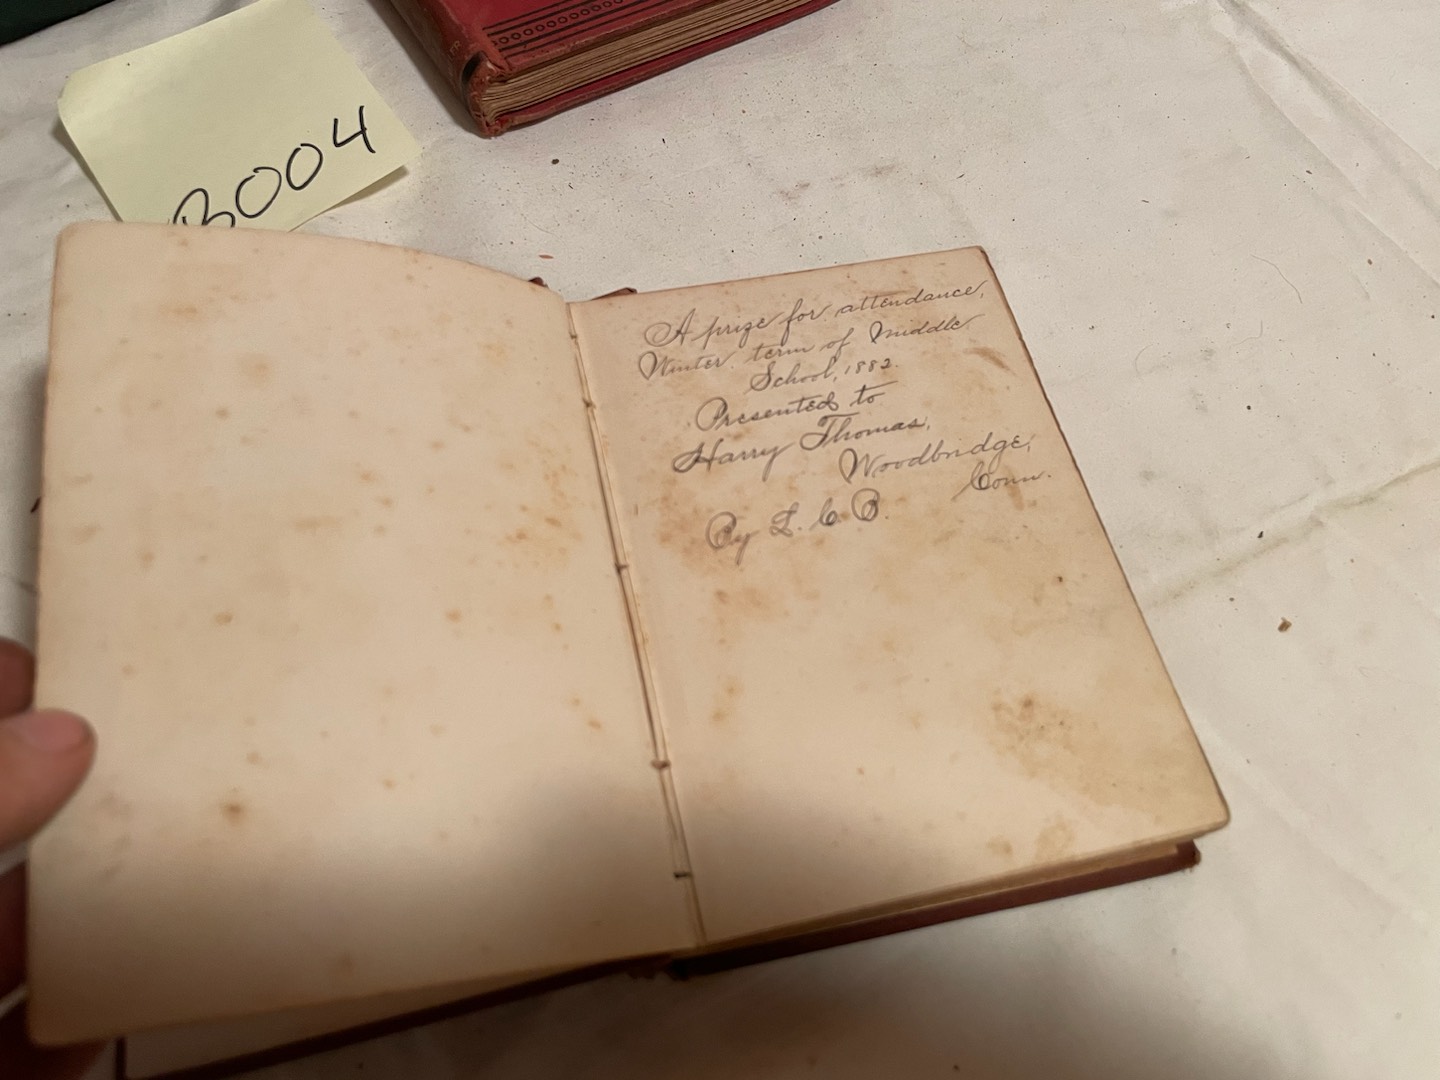 B004
A prize for attendance,
Winter term of Middle
School, 1882.
Presented to
Harry Thomas,
Woodbridge,
Conn.
By L. C. B.